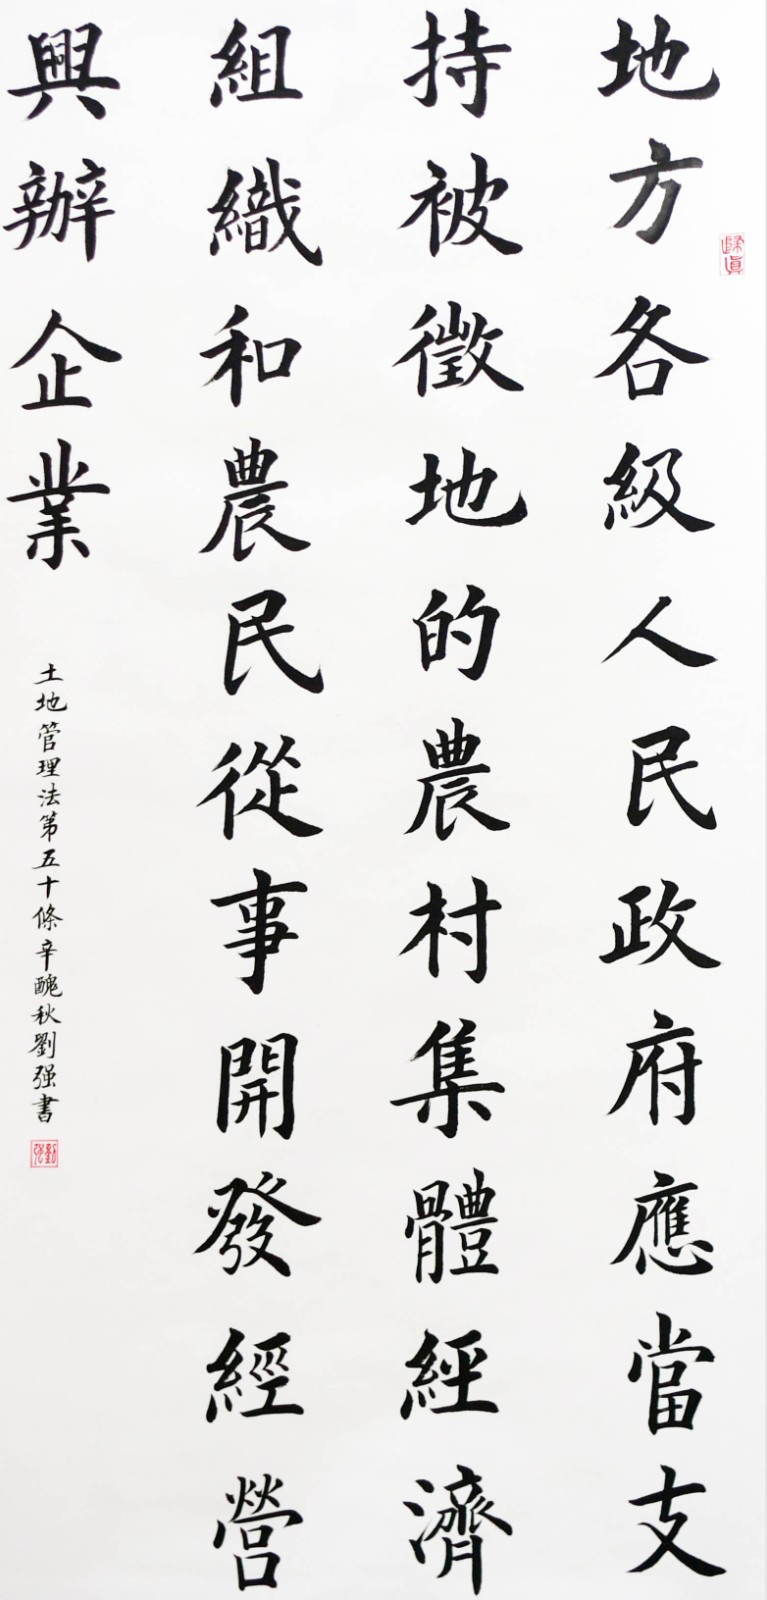 地方各級人民政府應當支
持被徵地的農村集體經濟
組織和農民從事開發經營
興辦企業
土地管理法第五十條辛醜秋劉强書
歸真
劉强